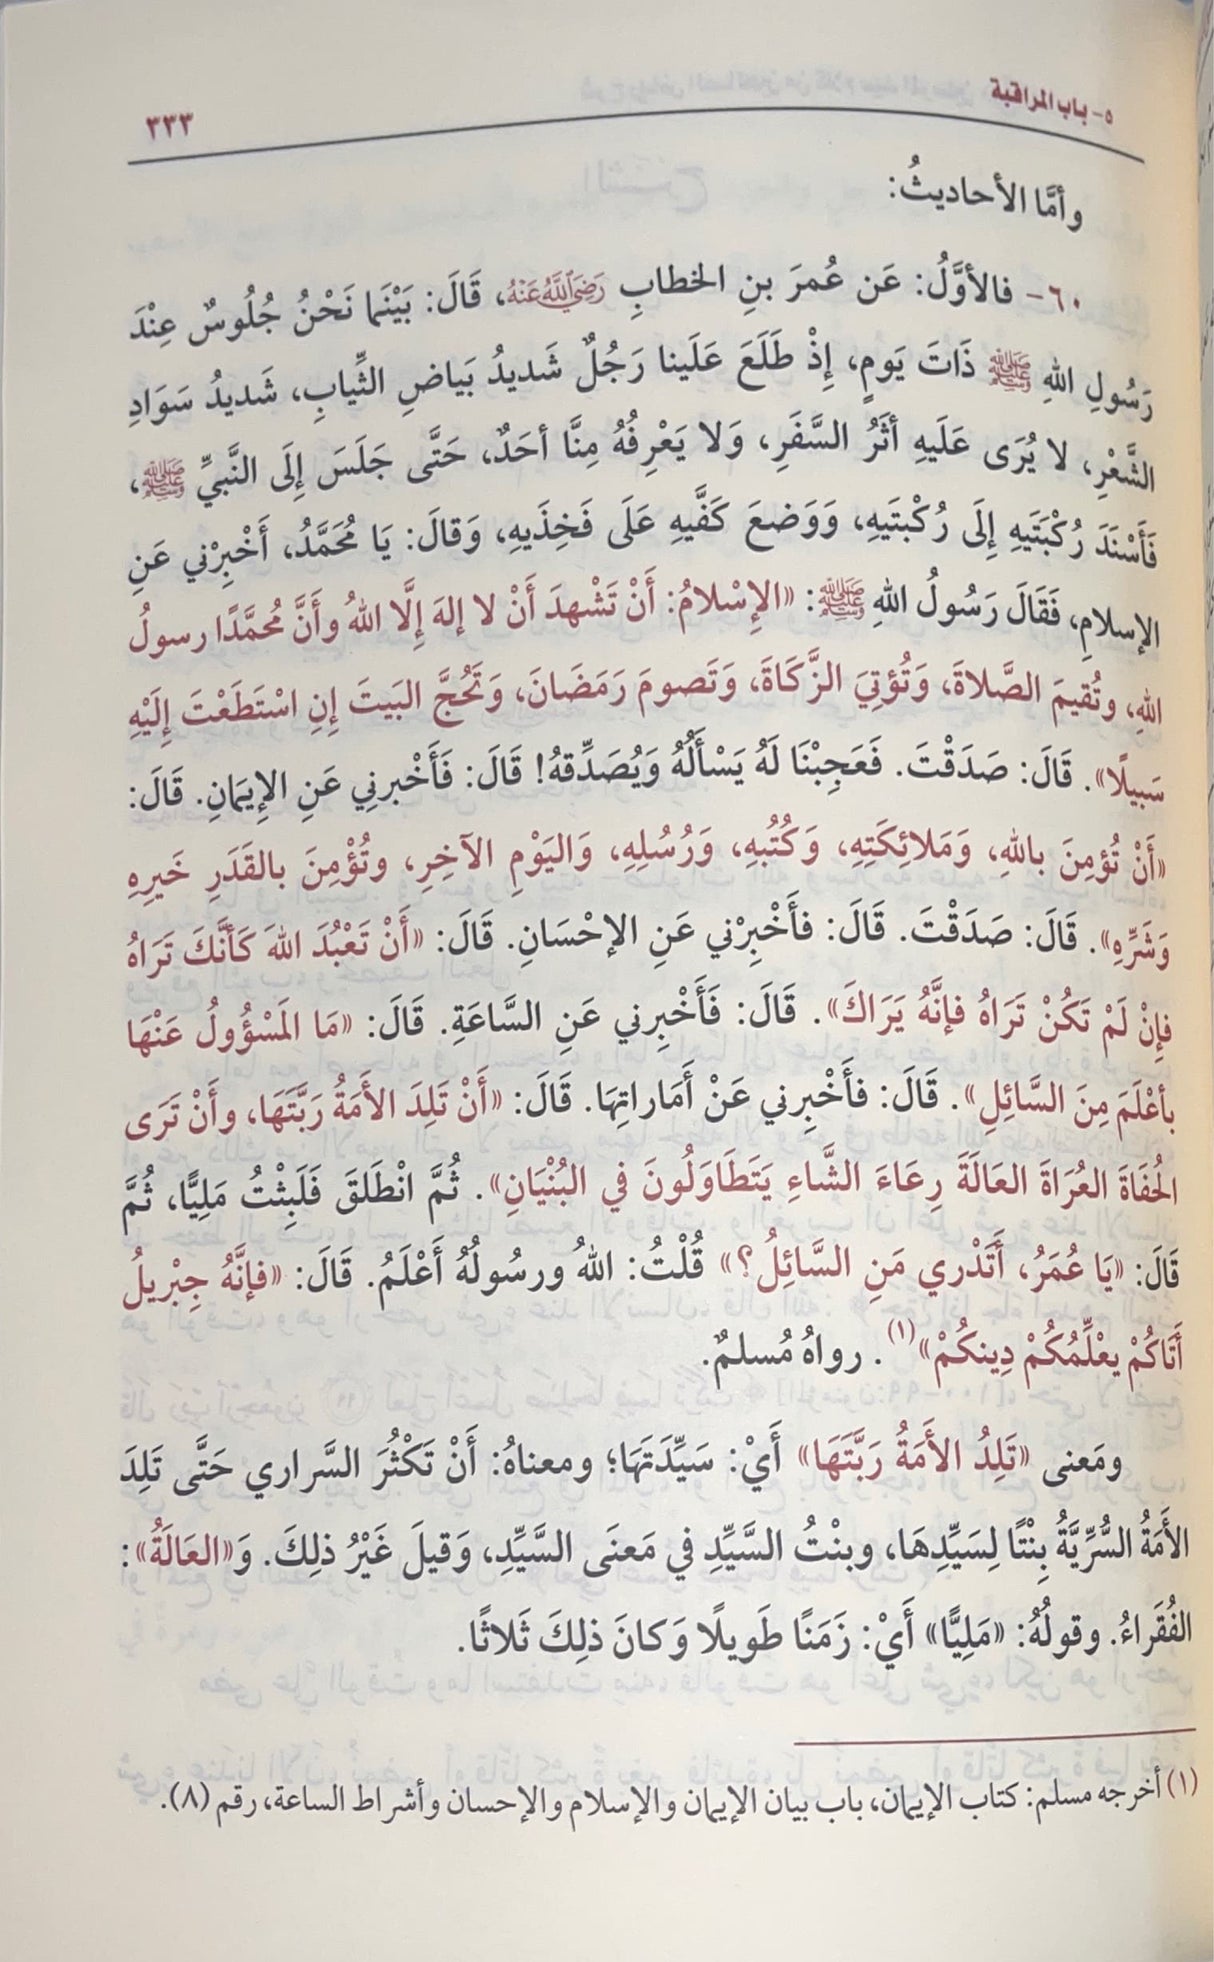 ٥- باب المراقبة
٣٣٣
وأمَّا الأحاديثُ:
٦٠- فالأوَّلُ: عَن عُمرَ بنِ الخطابِ رَضِيَ اللَّهُ عَنْهُ، قَالَ: بَيْنَما نَحْنُ جُلُوسٌ عِنْدَ
رَسُولِ اللهِ ﷺ ذَاتَ يَومٍ، إِذْ طَلَعَ عَلَينا رَجُلٌ شَديدُ بَياضِ الثِّيابِ، شَديدُ سَوَادِ
الشَّعْرِ، لا يُرَى عَلَيهِ أثَرُ السَّفَرِ، وَلا يَعْرِفُهُ مِنَّا أحَدٌ، حَتَّى جَلَسَ إِلَى النَّبيِّ ﷺ،
فَأَسْنَدَ رُكْبَتَيهِ إِلَى رُكْبتَيهِ، وَوَضعَ كَفَّيهِ عَلَى فَخِذَيهِ، وَقالَ: يَا مُحَمَّدُ، أَخْبِرْني عَنِ
الإسلامِ، فَقَالَ رَسُولُ اللهِ ﷺ: «الإِسْلامُ: أَنْ تَشْهدَ أَنْ لا إلهَ إِلَّا اللهُ وأَنَّ مُحمَّدًا رسولُ
اللهِ، وتُقيمَ الصَّلاةَ، وَتُؤتِيَ الزَّكَاةَ، وَتَصومَ رَمَضَانَ، وَتَحُجَّ البَيتَ إِنِ اسْتَطَعْتَ إِلَيْهِ
سَبيلًا». قَالَ: صَدَقْتَ. فَعَجِبْنَا لَهُ يَسْأَلُهُ وَيُصَدِّقهُ! قَالَ: فَأَخْبرنِي عَنِ الإِيمَانِ. قَالَ:
«أَنْ تُؤمِنَ باللهِ، وَمَلائِكَتِهِ، وَكُتُبهِ، وَرُسُلِهِ، وَاليَوْمِ الآخِرِ، وتُؤْمِنَ بالقَدَرِ خَيرِهِ
وَشَرِّهِ». قَالَ: صَدَقْتَ. قَالَ: فأَخْبِرْني عَنِ الإحْسَانِ. قَالَ: «أَنْ تَعْبُدَ اللهَ كَأنَّكَ تَرَاهُ
فإِنْ لَمْ تَكُنْ تَرَاهُ فإنَّهُ يَرَاكَ». قَالَ: فَأَخْبِرني عَنِ السَّاعَةِ. قَالَ: «مَا المَسْؤُولُ عَنْهَا
بأعْلَمَ مِنَ السَّائِلِ». قَالَ: فأَخْبِرني عَنْ أَمَاراتِهَا. قَالَ: «أَنْ تَلِدَ الأَمَةُ رَبَّتَهَا، وأَنْ تَرَى
الحُفَاةَ العُرَاةَ العَالَةَ رِعَاءَ الشَّاءِ يَتَطَاوَلُونَ في البُنْيَانِ». ثُمَّ انْطَلَقَ فَلَبِثْتُ مَلِيًّا، ثُمَّ
قَالَ: «يَا عُمَرُ، أَتَدْري مَنِ السَّائِلُ؟» قُلْتُ: اللهُ ورسُولُهُ أَعْلَمُ. قَالَ: «فإنَّهُ جِبْريلُ
أَتَاكُمْ يعْلِّمُكُمْ دِينكُمْ»(١). رواهُ مُسلمٌ.
ومَعنى «تَلِدُ الأَمَةُ رَبَّتَهَا» أَيْ: سَيِّدَتَهَا؛ ومعناهُ: أَنْ تَكْثُرَ السَّراري حَتَّى تَلِدَ
الأَمَةُ السُّرِّيَّةُ بِنْتًا لِسَيِّدِهَا، وبنْتُ السَّيِّدِ في مَعنَى السَّيِّدِ، وَقيلَ غَيْرُ ذلِكَ. وَ«العَالَةُ»:
الفُقَراءُ. وقولُهُ: «مَلِيًّا» أَيْ: زَمَنًا طَويلًا وَكانَ ذلِكَ ثَلاثًا.
(١) أخرجه مسلم: كتاب الإيمان، باب بيان الإيمان والإسلام والإحسان وأشراط الساعة، رقم (٨).